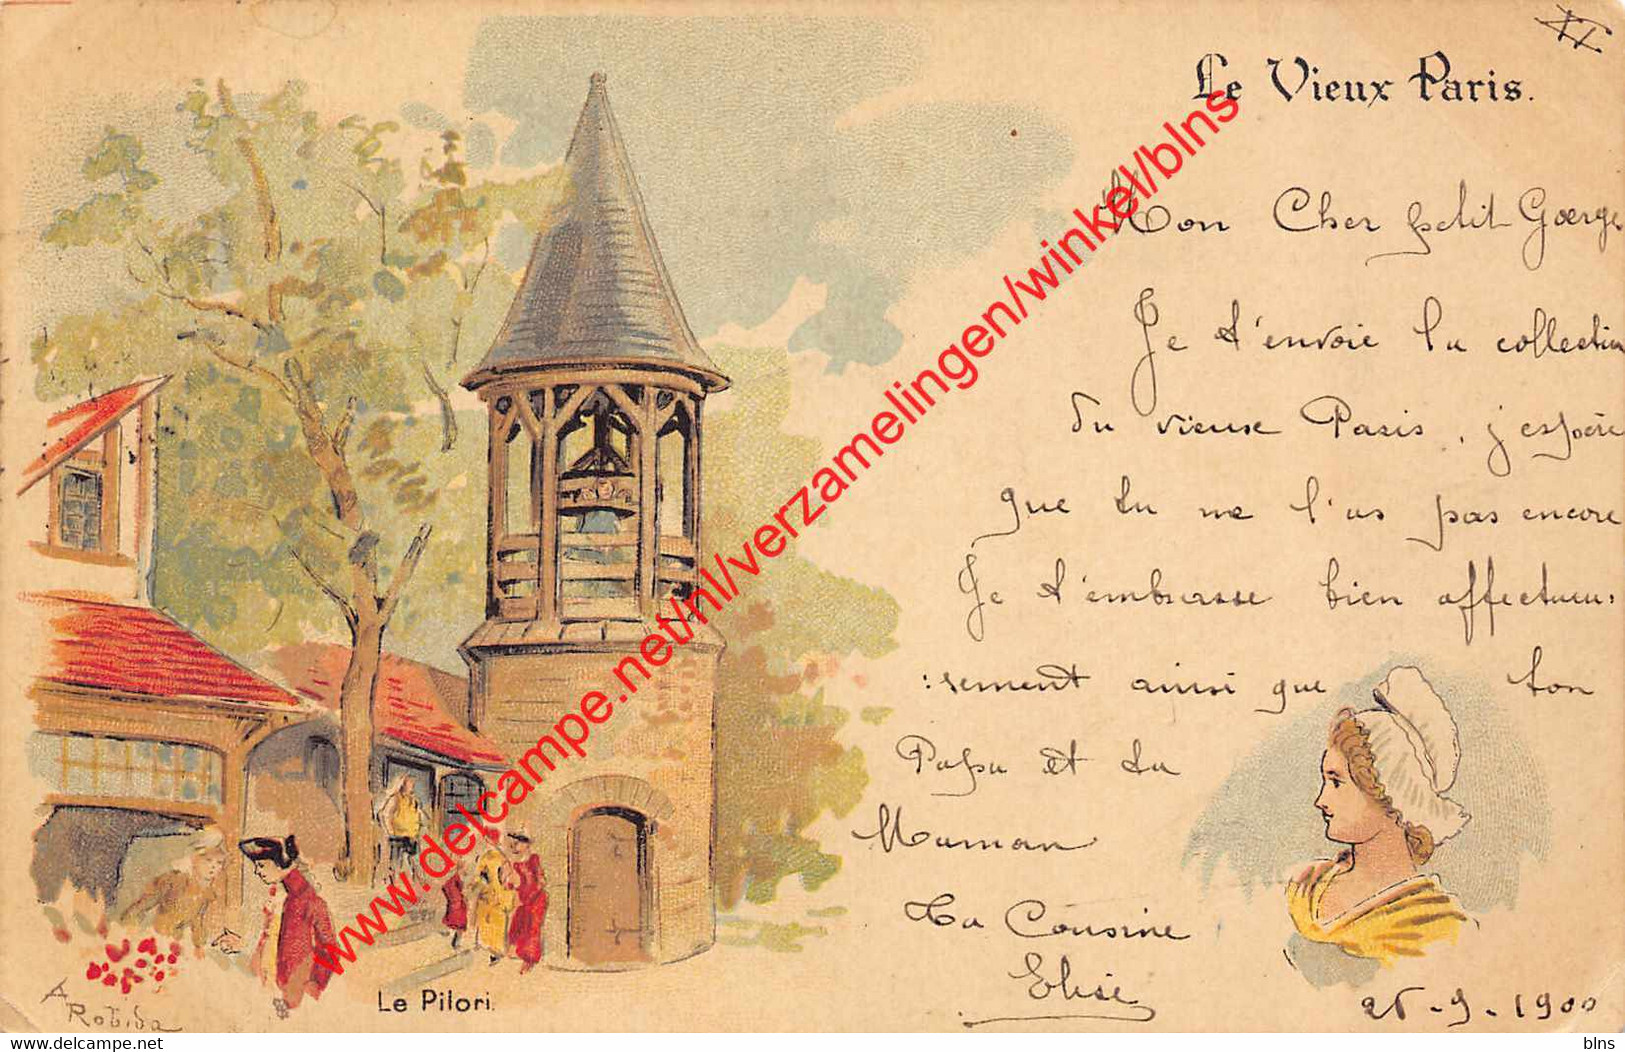 Le Vieux Paris.
Mon Cher petit Goerge
Je t'envoie la collection
du vieuse Paris, j'espère
que tu ne l'as pas encore
Je t'embrasse bien affectueu:
:sement ainsi que ton
Papa et ta
Maman
Ta Cousine
Elise
25-9-1900
Le Pilori.
A Robida
www.delcampe.net/nl/verzamelingen/winkel/blns
website www.delcampe.net
blns